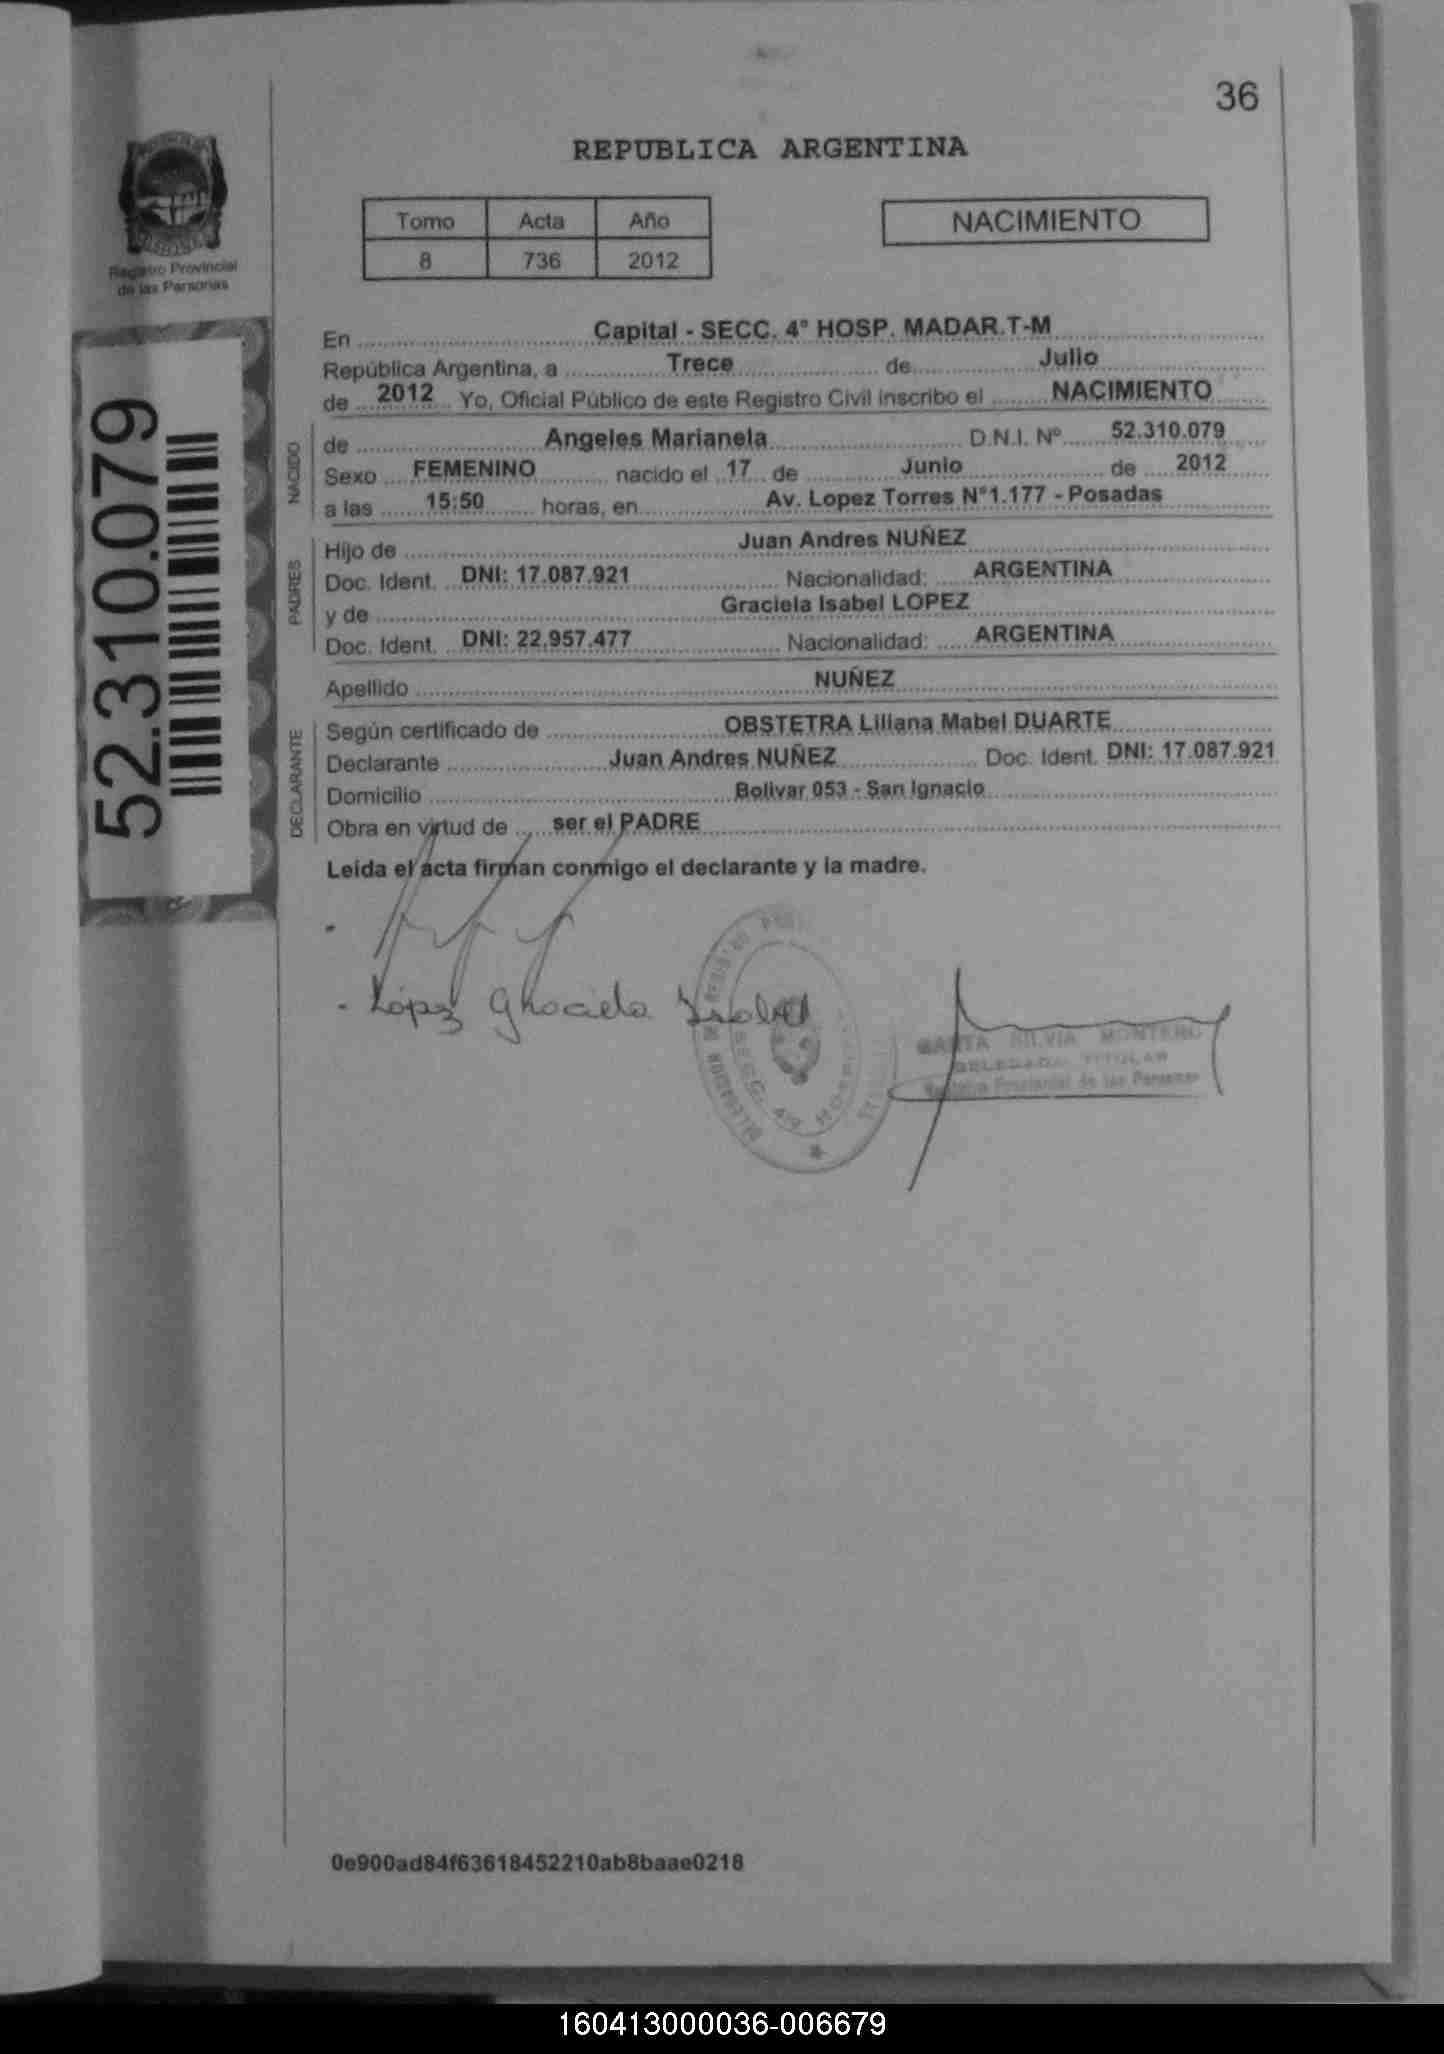 36
REPUBLICA ARGENTINA
Registro Provincial
de las Personas
Tomo Acta Año
8 736 2012
NACIMIENTO
52.310.079
En Capital - SECC. 4° HOSP. MADAR.T-M
República Argentina, a Trece de Julio
de 2012 Yo, Oficial Público de este Registro Civil inscribo el NACIMIENTO
NACIDO
de Angeles Marianela D.N.I. Nº 52.310.079
Sexo FEMENINO nacido el 17 de Junio de 2012
a las 15:50 horas, en Av. Lopez Torres N°1.177 - Posadas
PADRES
Hijo de Juan Andres NUÑEZ
Doc. Ident. DNI: 17.087.921 Nacionalidad: ARGENTINA
y de Graciela Isabel LOPEZ
Doc. Ident. DNI: 22.957.477 Nacionalidad: ARGENTINA
Apellido NUÑEZ
DECLARANTE
Según certificado de OBSTETRA Liliana Mabel DUARTE
Declarante Juan Andres NUÑEZ Doc. Ident. DNI: 17.087.921
Domicilio Bolivar 053 - San Ignacio
Obra en virtud de ser el PADRE
Leída el acta firman conmigo el declarante y la madre.
- López Graciela Isabel
SILVIA MONTERO
DELEGADA TITULAR
Registro Provincial de las Personas
0e900ad84f63618452210ab8baae0218
160413000036-006679